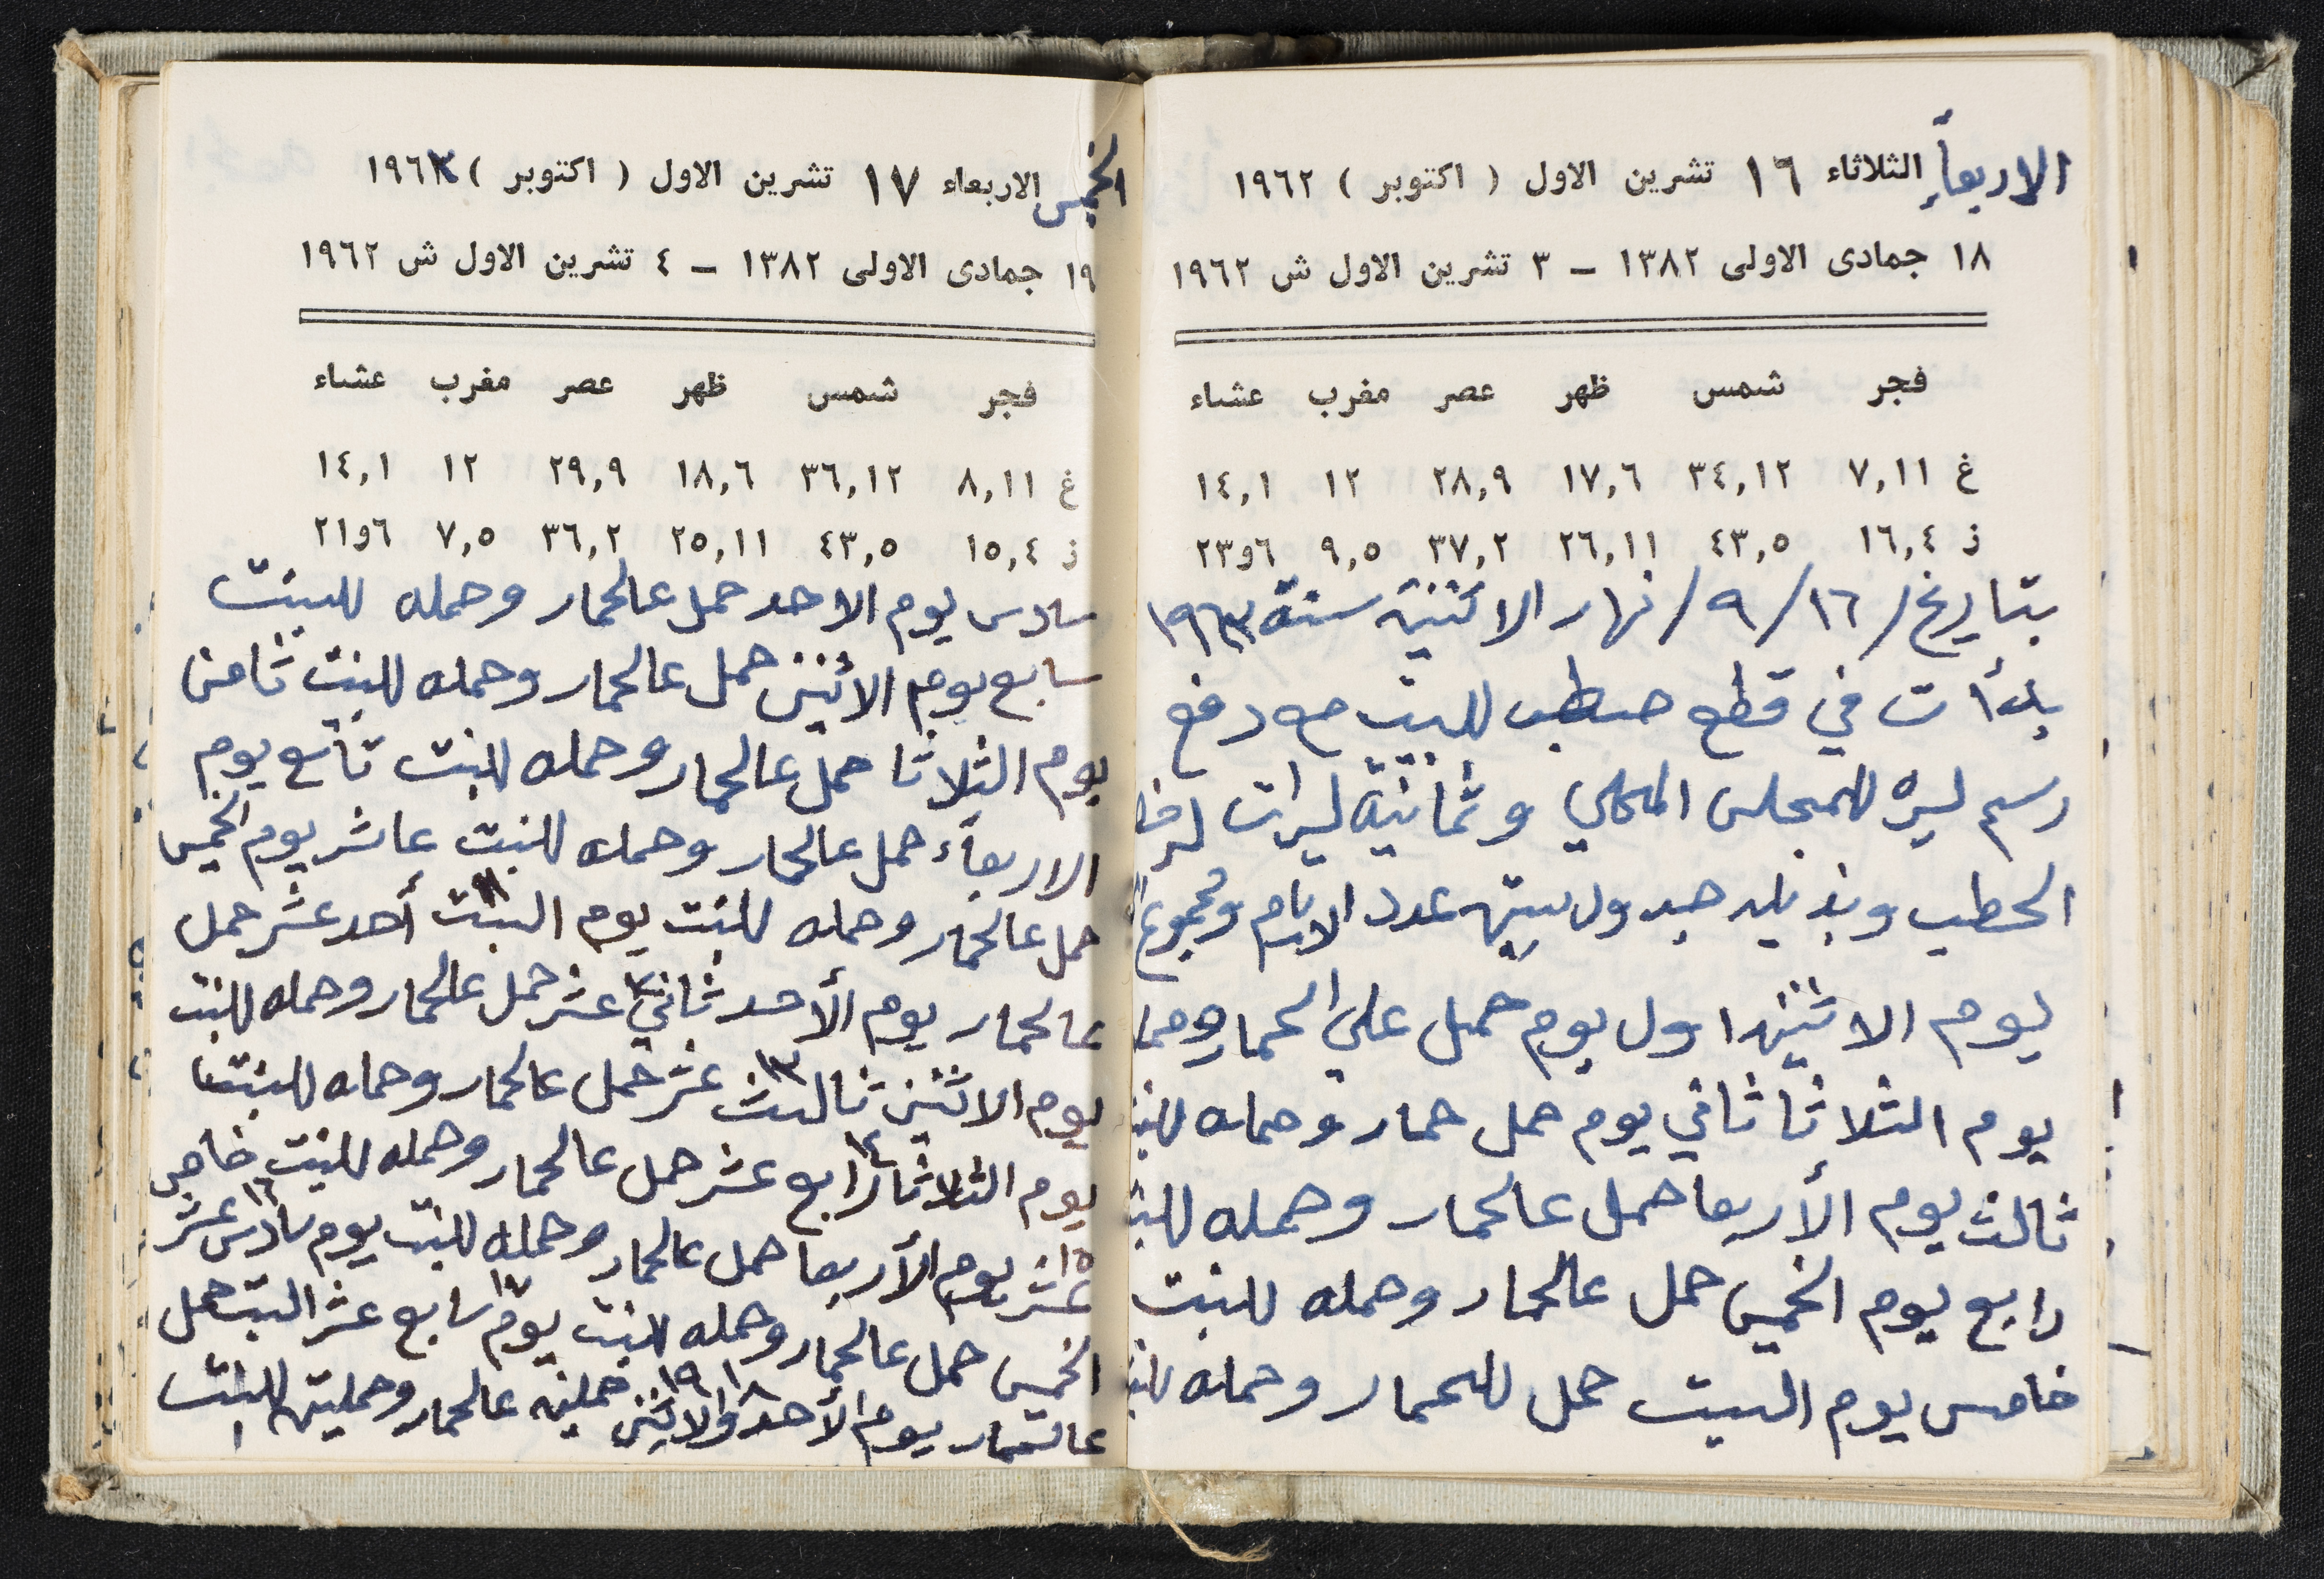 الاربعاء الثلاثاء ١٦ تشرين الاول ( اكتوبر ) ١٩٦٢
١٨ جمادى الاولى ١٣٨٢ – ٣ تشرين الاول ش ١٩٦٢
فجر شمس ظهر عصر مغرب عشاء
غ ٧,١١ ٣٤,١٢ ١٧,٦ ٢٨,٩ ١٢ ١٤,١
ز ١٦,٤ ٤٣,٥ ٢٦,١١ ٣٧,٢ ٩,٥ ٦و٢٣
بتاريخ /١٦/ ٩/ نهار الاثنين سنة ١٩٦٣
بدأت في قطع حطب للبيت مع دفع
رسم ليره للمجلس المحلي و ثمانية ليرات
الحطب وبذيله جدول يبين عدد الايام ومجموع
يوم الاثنين اول يوم حمل على الحمار
يوم الثلاثا ثاني يوم حمل حمار وحمله
ثالث يوم الأربعا حمل عالحمار وحمله
رابع يوم الخميس حمل عالحمار وحمله للبنت
خامس يوم السبت حمل للحمار وحمله
الخميس الاربعاء ١٧ تشرين الاول ( اكتوبر ) ١٩٦٣
١٩ جمادى الاولى ١٣٨٢ – ٤ تشرين الاول ش ١٩٦٢
فجر شمس ظهر عصر مغرب عشاء
غ ٨,١١ ٣٦,١٢ ١٨,٦ ٢٩,٩ ١٢ ١٤,١
ز ١٥,٤ ٤٣,٥ ٢٥,١١ ٣٦,٢ ٧,٥ ٦و٢١
سادس يوم الاحد حمل عالحمار وحمله للبنت
سابع يوم الاثنين حمل عالحمار وحمله للبنت ثامن
يوم الثلاثا حمل عالحمار وحمله للبنت تاسع يوم
الاربعاء حمل عالحمار وحمله للبنت عاشر يوم الخميس
حمل عالحمار وحمله للبنت يوم السبت ١١ أحد عشر حمل
عالحمار يوم الأحد ثاني ١٢ عشر حمل عالحمار وحمله للبنت
يوم الاثنين ثالث ١٣ عشر حمل عالحمار وحمله للبنت
يوم الثلاثا ١٤ رابع عشر حمل عالحمار وحمله للبنت خامس
١٥ عشر يوم الأربعا حمل عالحمار وحمله للبنت يوم سادس ١٦ عشر
الخميس حمل عالحمار وحمله للبنت يوم ١٧ سابع عشر السبت حمل
عالحمار يوم الأحد ١٨ والاثنين ١٩ حملين عالحمار وحملتين للبنت